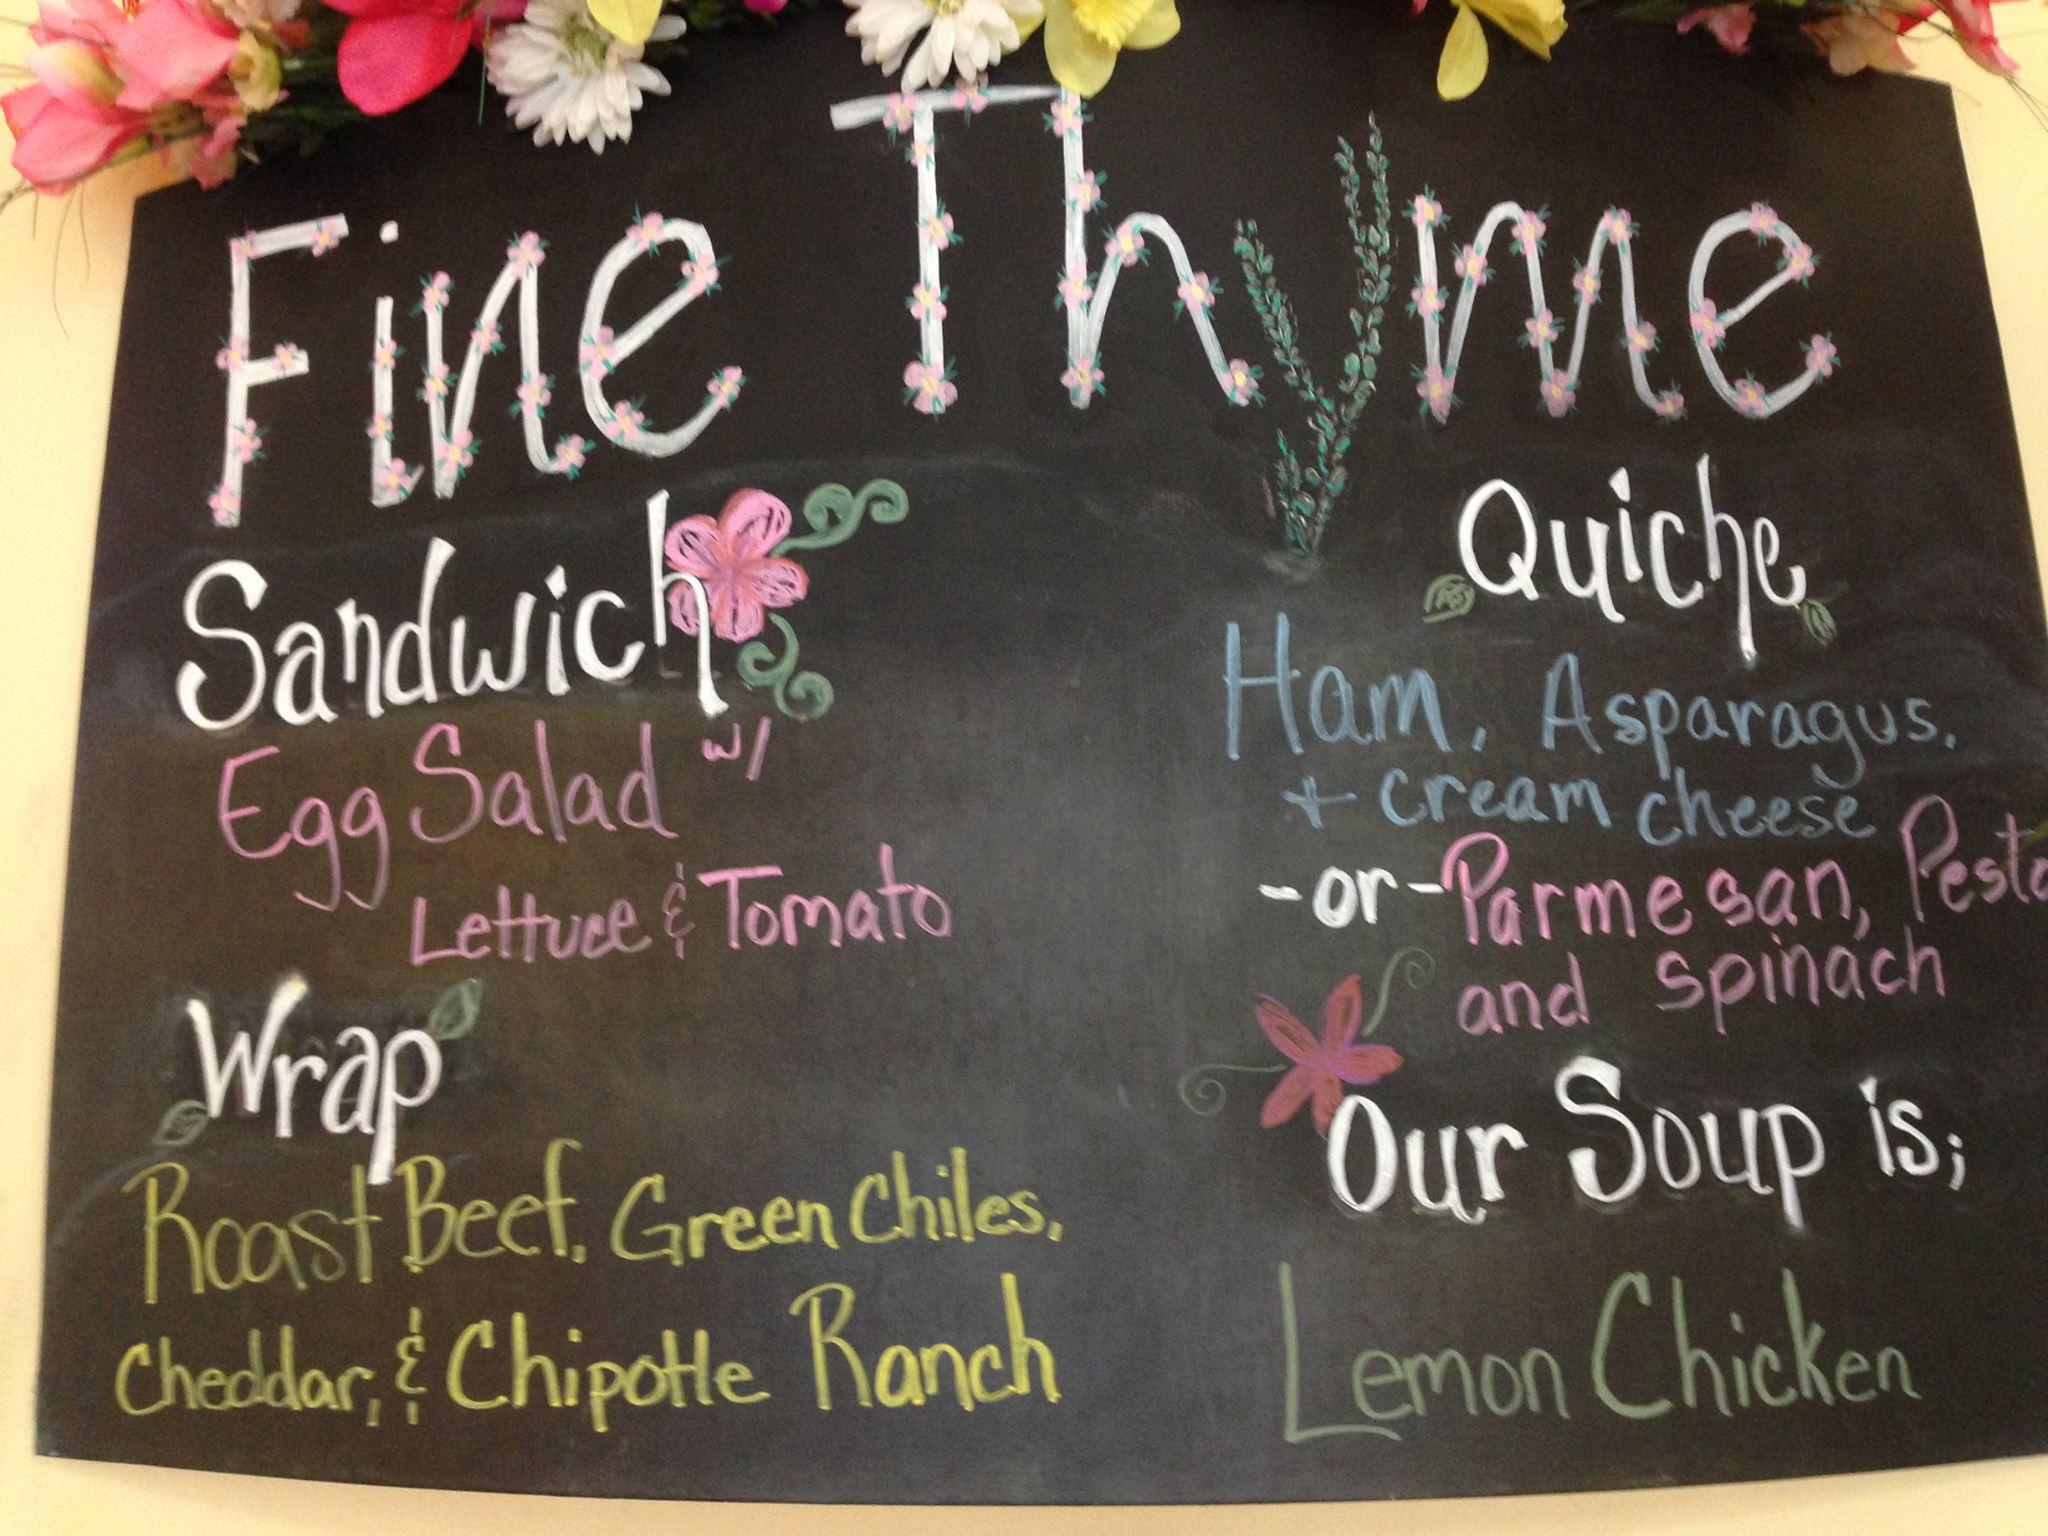 Fine Thyme
Sandwich
Egg Salad w/
Lettuce & Tomato
Wrap
Roast Beef, Green Chiles,
Cheddar, & Chipotle Ranch
Quiche
Ham, Asparagus,
+ cream cheese
-or- Parmesan, Pesto
and spinach
Our Soup is;
Lemon Chicken